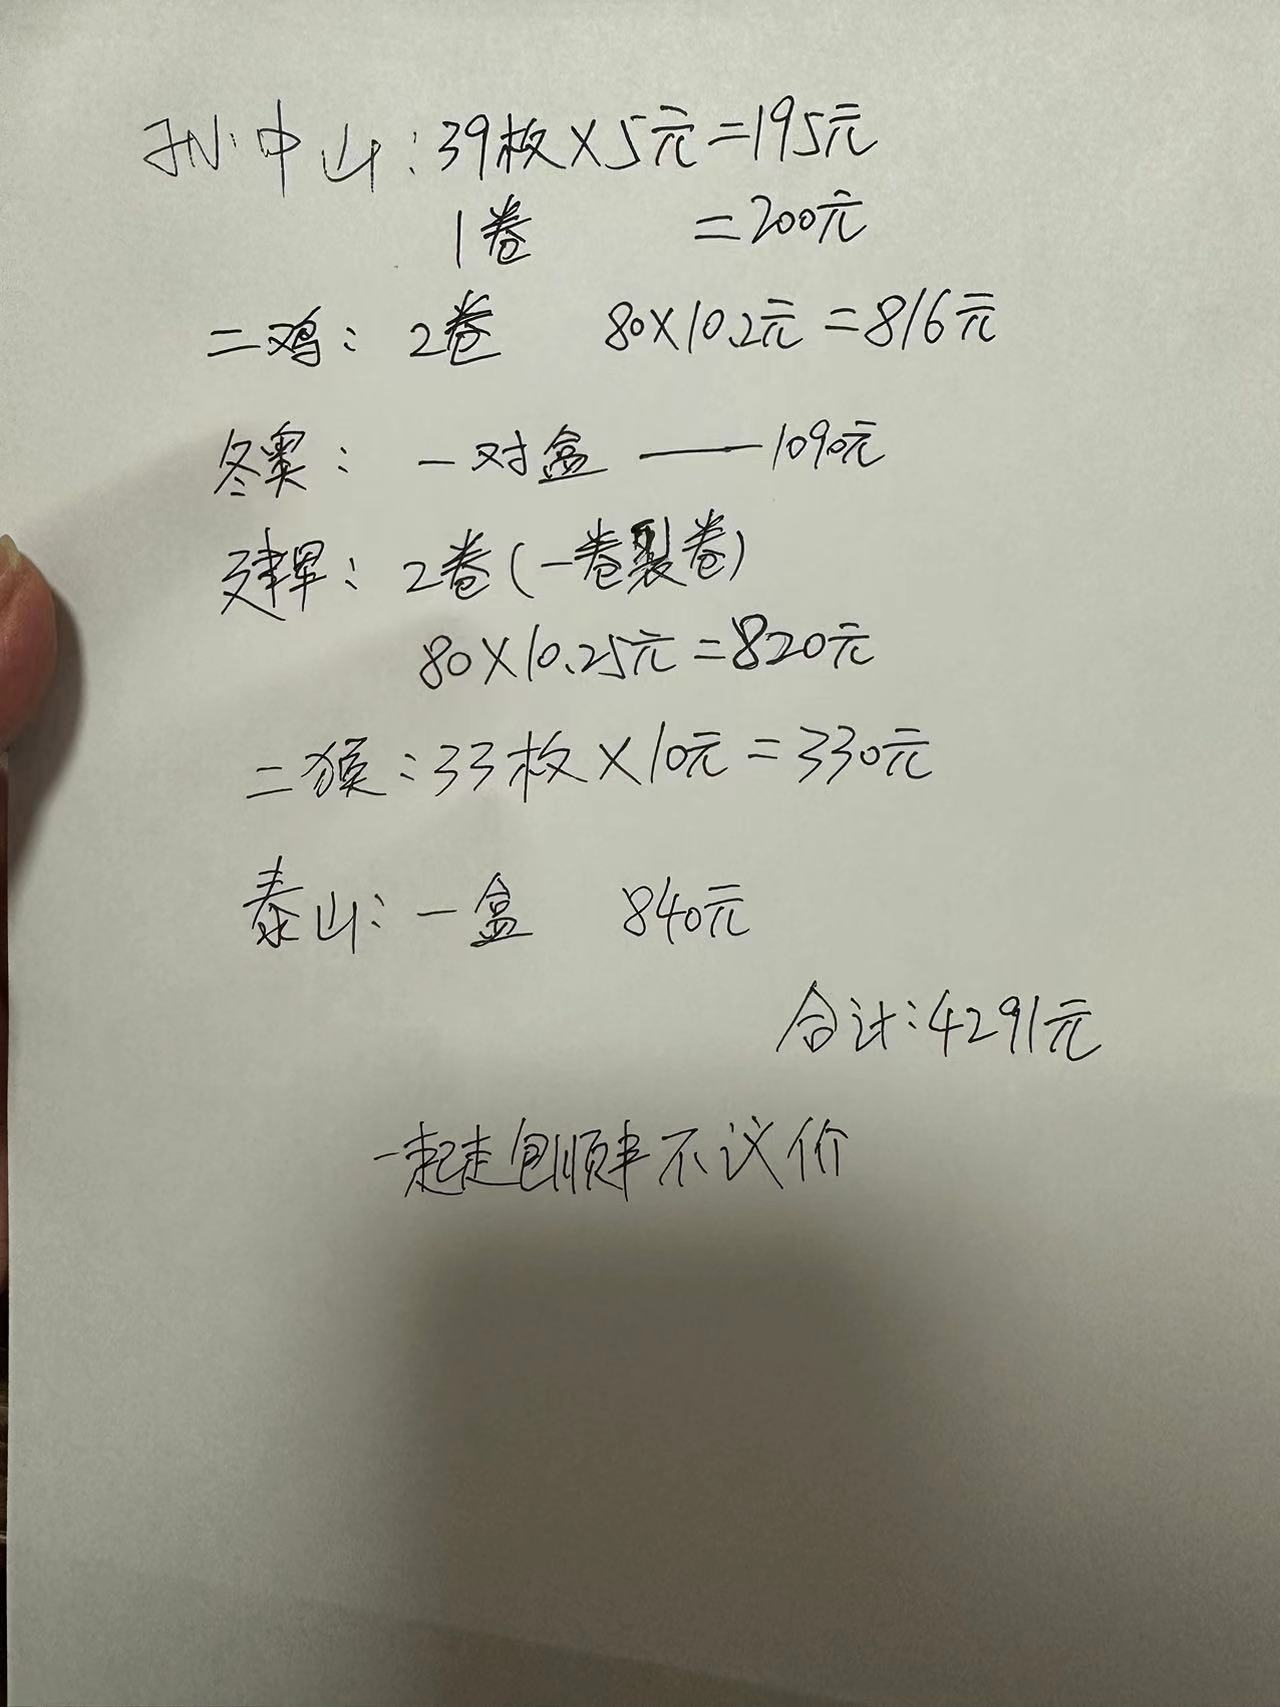 孙中山:39枚×5元=195元
1卷 =200元
二鸡: 2卷 80×10.2元=816元
冬奥: 一对盒——1090元
建军: 2卷(一卷裂卷)
80×10.25元=820元
二猴:33枚×10元=330元
泰山:一盒 840元
合计:4291元
一起走包顺丰不议价